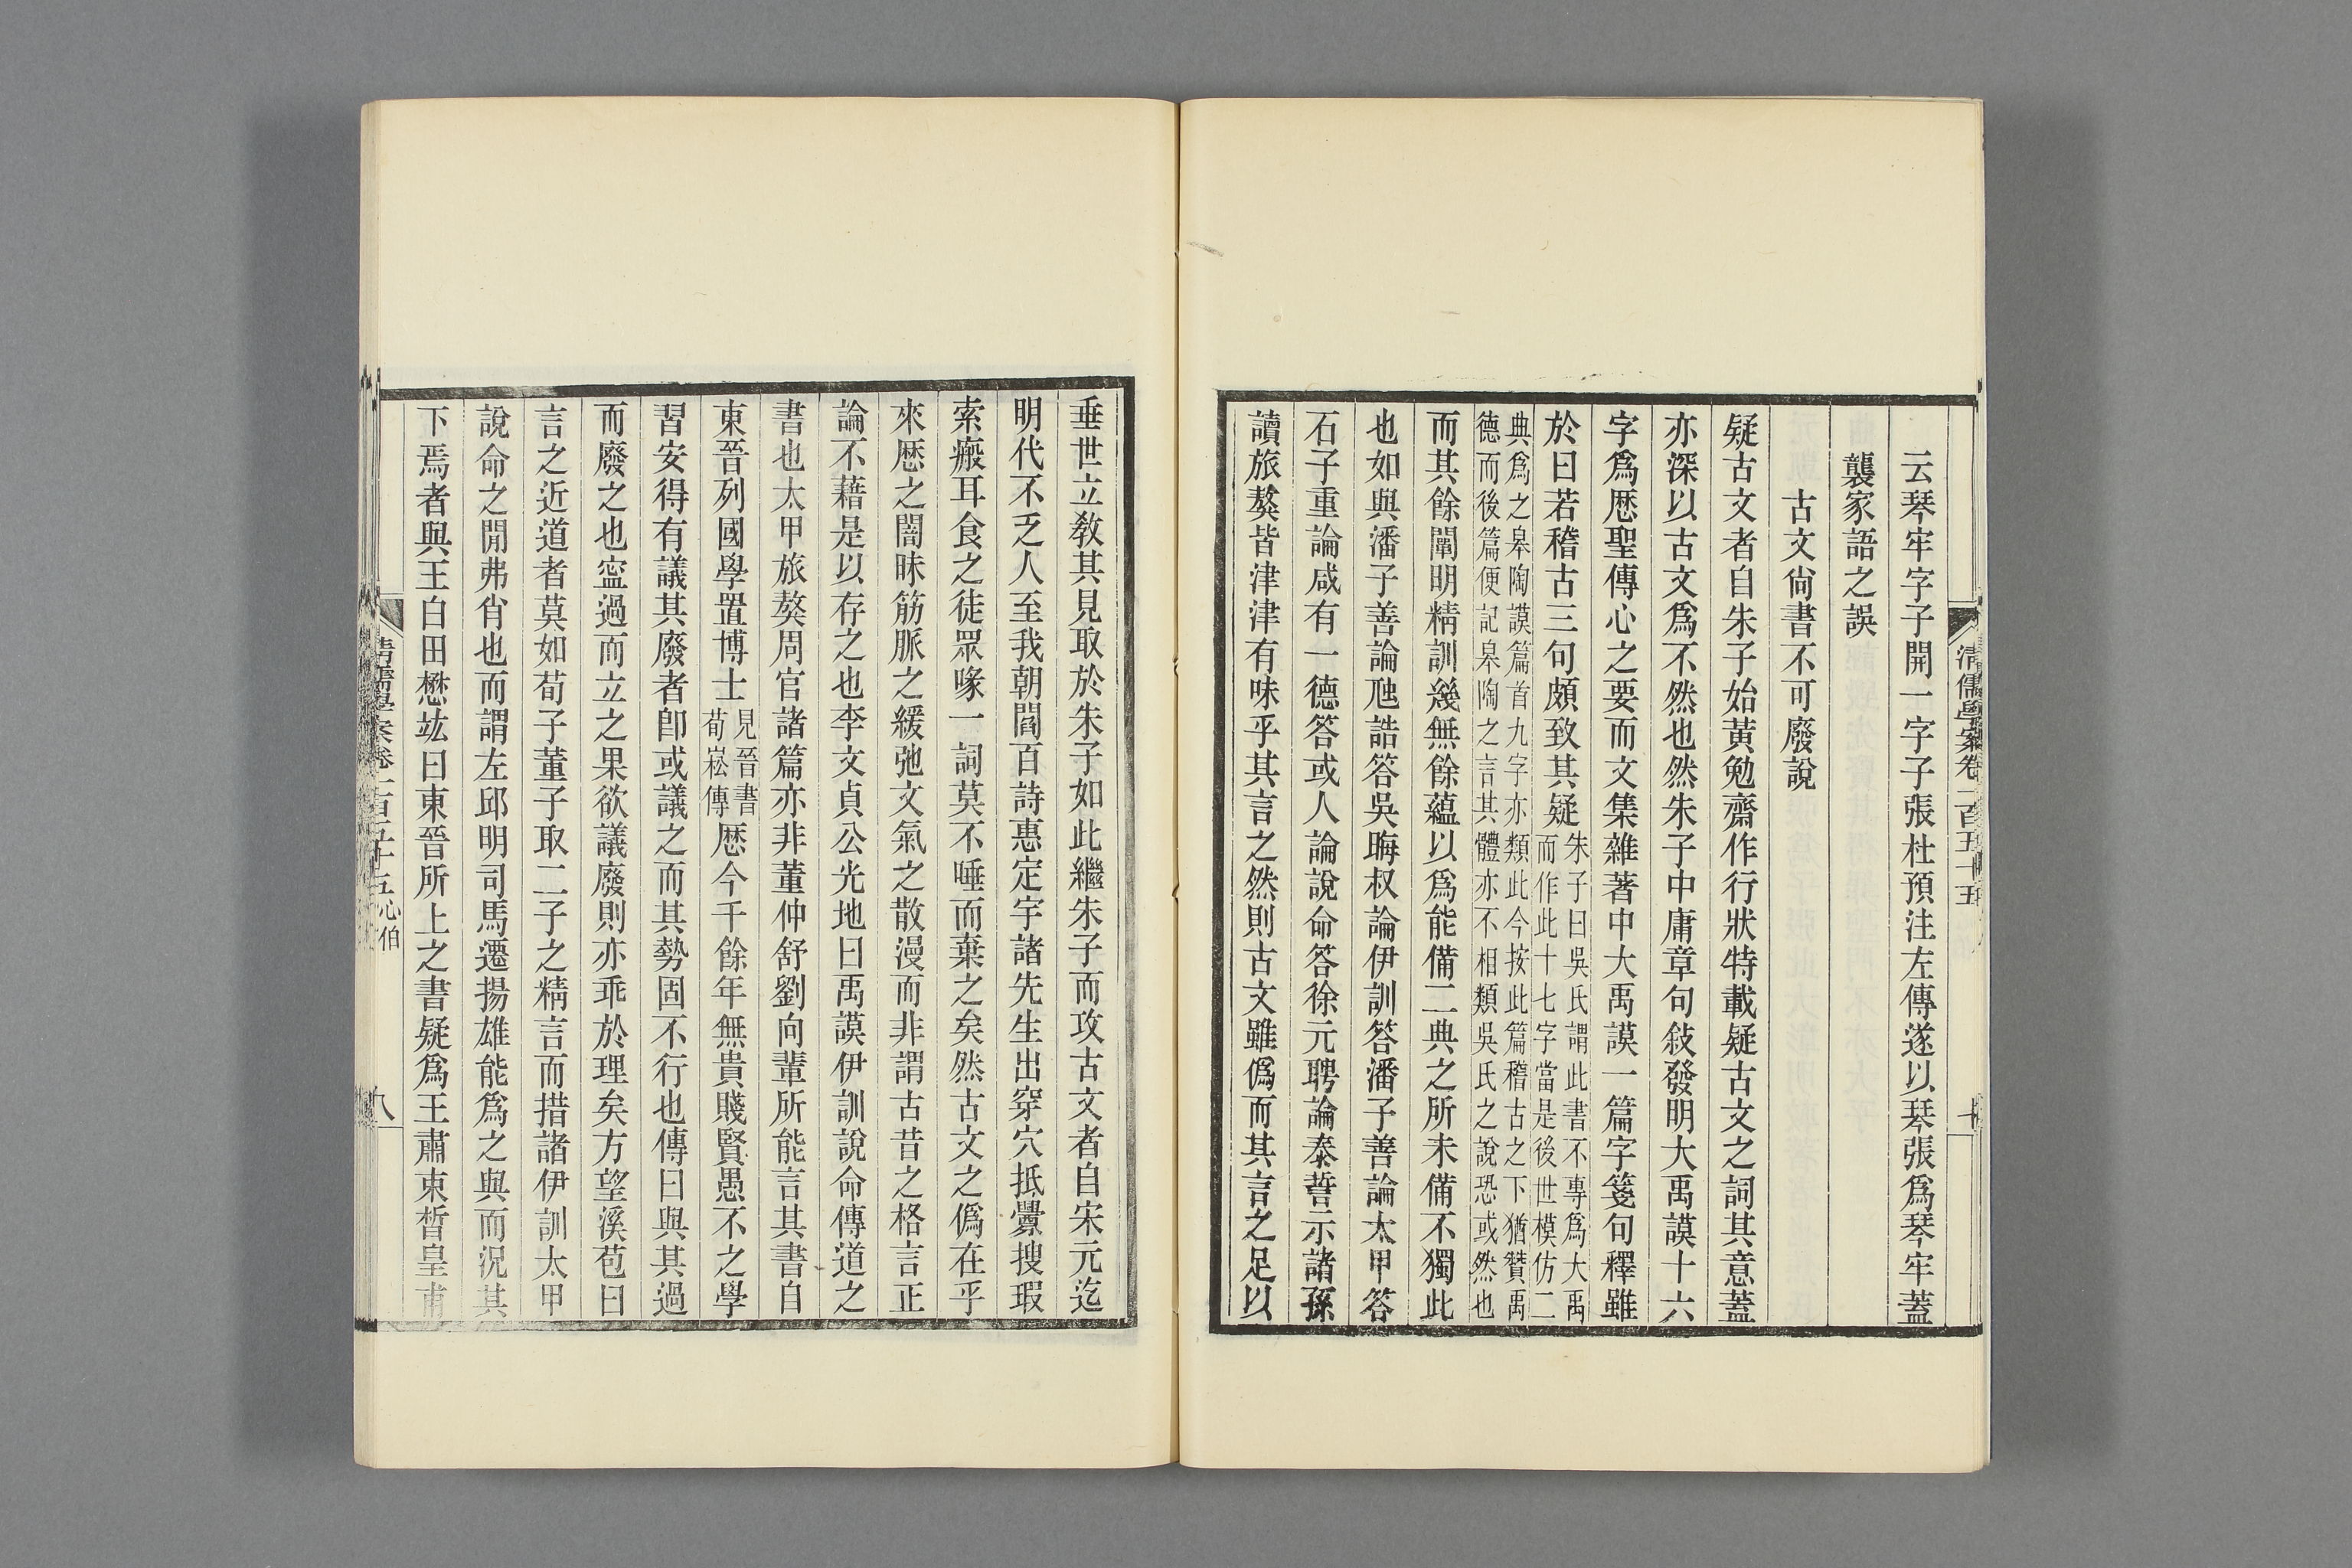 清儒學案卷一百五十五
十
云琴牢字子開一字子張杜預注左傳遂以琴張爲琴牢蓋
襲家語之誤
古文尙書不可廢說
疑古文者自朱子始黃勉齋作行狀特載疑古文之詞其意蓋
亦深以古文爲不然也然朱子中庸章句敍發明大禹謨十六
字爲厯聖傳心之要而文集雜著中大禹謨一篇字箋句釋雖
於曰若稽古三句頗致其疑朱子曰吳氏謂此書不專爲大禹
而作此十七字當是後世模仿二
典爲之皋陶謨篇首九字亦類此今按此篇稽古之下猶贊禹
德而後篇便記皋陶之言其體亦不相類吳氏之說恐或然也
而其餘闡明精訓幾無餘蘊以爲能備二典之所未備不獨此
也如與潘子善論虺誥答吳晦叔論伊訓答潘子善論太甲答
石子重論咸有一德答或人論說命答徐元聘論泰誓示諸孫
讀旅獒皆津津有味乎其言之然則古文雖僞而其言之足以
垂世立敎其見取於朱子如此繼朱子而攻古文者自宋元迄
明代不乏人至我朝閻百詩惠定宇諸先生出穿穴抵釁搜瑕
索瘢耳食之徒眾喙一詞莫不唾而棄之矣然古文之僞在乎
來厯之闇昧筋脈之緩弛文氣之散漫而非謂古昔之格言正
論不藉是以存之也李文貞公光地曰禹謨伊訓說命傳道之
書也太甲旅獒周官諸篇亦非董仲舒劉向輩所能言其書自
東晉列國學置博士見晉書
荀崧傳厯今千餘年無貴賤賢愚不之學
習安得有議其廢者卽或議之而其勢固不行也傳曰與其過
而廢之也寍過而立之果欲議廢則亦乖於理矣方望溪苞曰
言之近道者莫如荀子董子取二子之精言而措諸伊訓太甲
說命之閒弗肖也而謂左邱明司馬遷揚雄能爲之與而況其
下焉者與王白田懋竑曰東晉所上之書疑爲王肅束晳皇甫
清儒學案卷一百五十五心伯
八